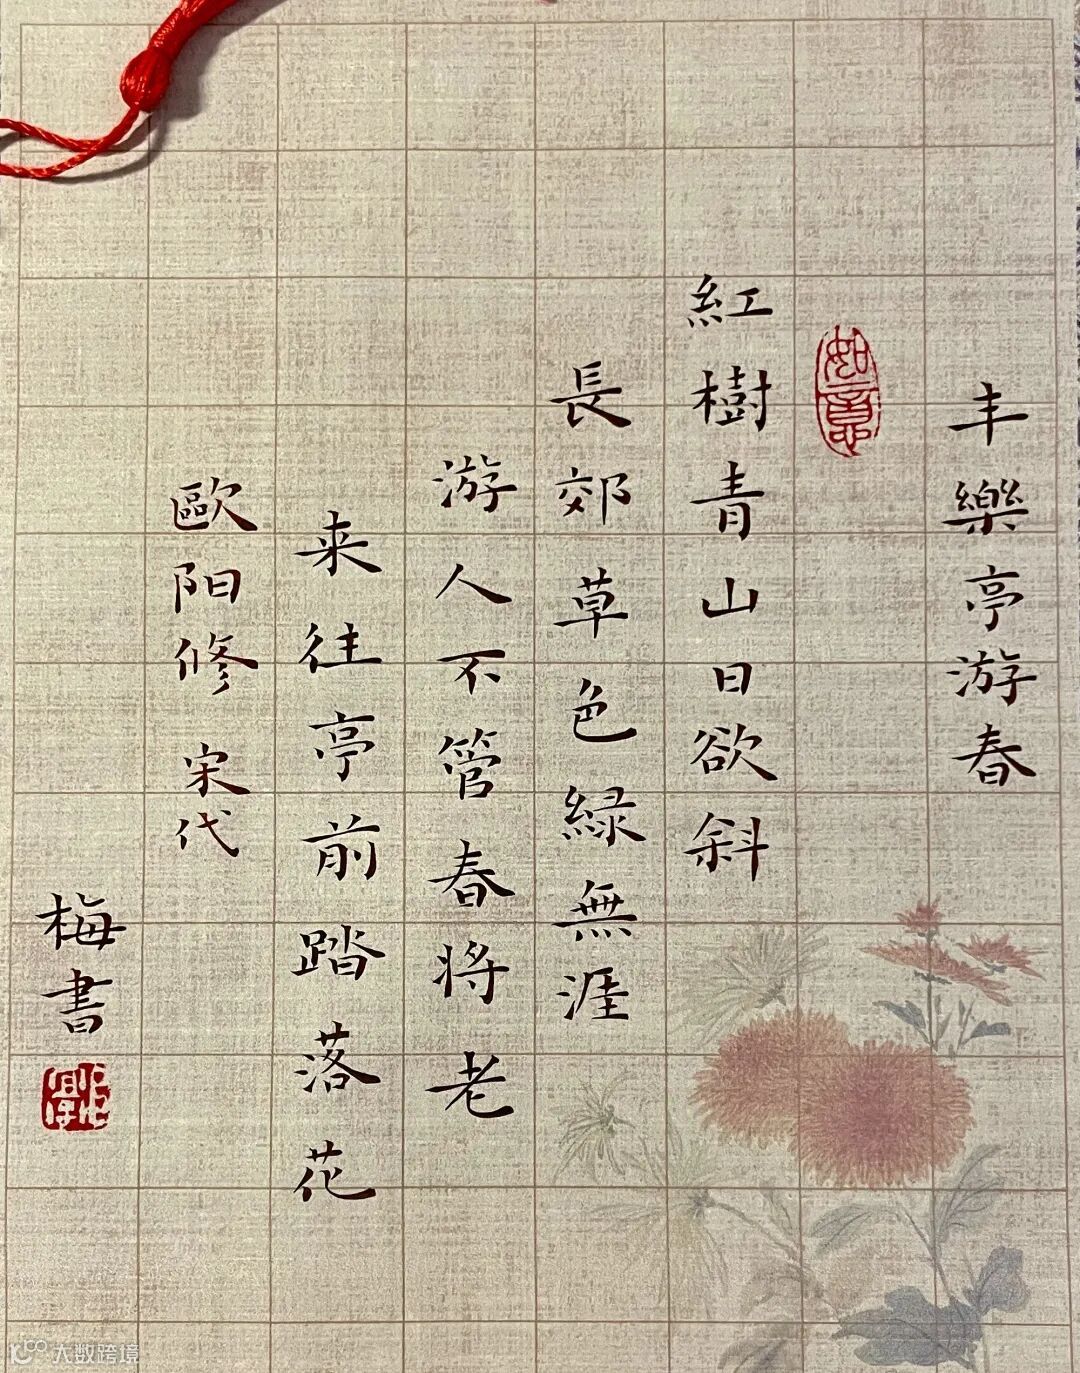 丰樂亭游春
如意
紅樹青山日欲斜
長郊草色緑無涯
游人不管春将老
来往亭前踏落花
歐阳修 宋代
梅書
大数跨境